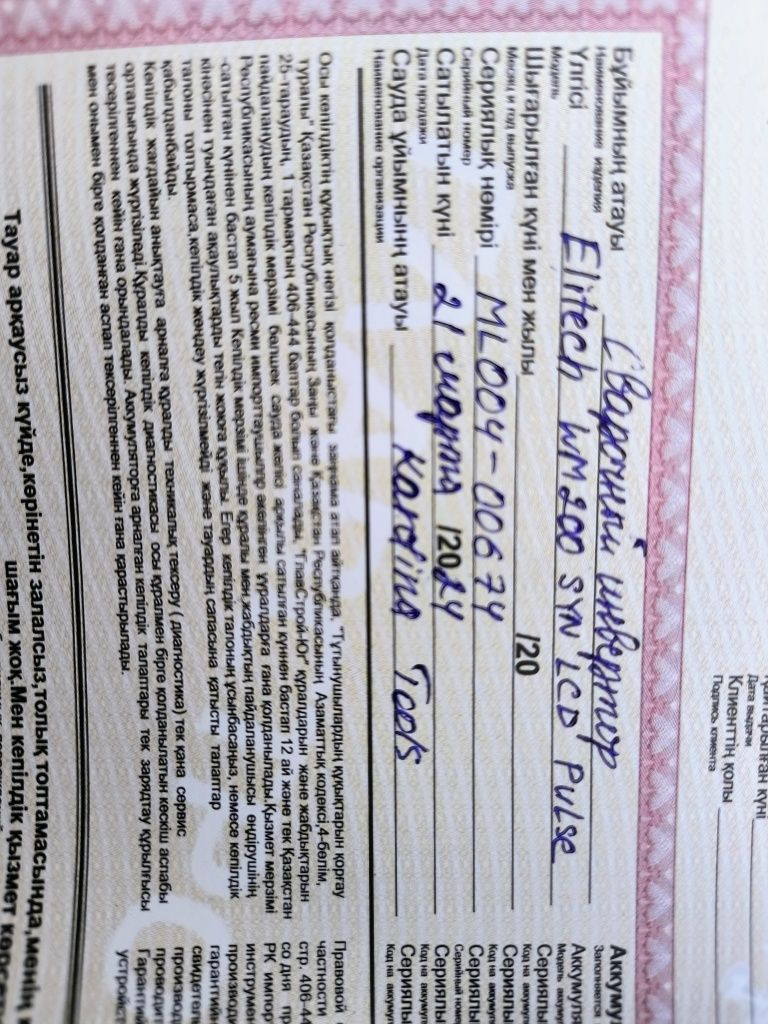 Бұйымның атауы Сварочный инвертор
Наименование изделия
Үлгісі Elitech WM 200 SYN LCD Pulse
Модель
Шығарылған күні мен жылы /20
Месяц и год выпуска
Сериялық нөмірі ML004-00674
Серийный номер
Сатылатын күні 21 марта /2024
Дата продажи
Сауда ұйымның атауы Karolina Tools
Наименование организации
Осы кепілдіктің құқықтық негізі қолданыстағы заңнама атап айтқанда, "Тұтынушылардың құқықтарын қорғау
туралы" Қазақстан Республикасының Заңы және Қазақстан Республикасының Азаматтық кодексі,4-бөлім,
25-тараудың, 1 тармақтың 406-444 баптар болып саналады, "ГлавСтрой-Юг" құралдарын және жабдықтарын
пайдаланудың кепілдік мерзімі бөлшек сауда желісі арқылы сатылған күннен бастап 12 ай және тек Қазақстан
Республикасының аумағына ресми импорттаушылар әкелінген құралдарға ғана қолданылады.Қызмет мерзімі
-сатылған күнінен бастап 5 жыл Кепілдік мерзімі ішінде құралы мен жабдықтың пайдаланушысы өндірушінің
кінәсінен туындаған ақаулықтарды тегін жоюға құқылы. Егер кепілдік талонын ұсынбасаңыз, немесе кепілдік
талоны толтырмаса,кепілдік жөндеу жүргізілмейді және тауардың сапасына қатысты талаптар
қабылданбайды.
Кепілдік жағдайын анықтауға арналға құралды техникалық тексеру ( диагностика) тек қана сервис
орталығында жүргізіледі.Құралды кепілдік диагностикасы осы құралмен бірге қолданылатын кескіш аспабы
тесерілгеннен кейін ғана орындалады. Аккумуляторға арналған кепілдік талаптары тек зарядтау құрылғысы
мен онымен бірге қолданған аспап тексерілгеннен кейін ғана қарастырылады.
Тауар арқаусыз күйде,көрінетін залалсыз,толық топтамасында,менің
шағым жоқ.Мен кепілдік қызмет көрсет
Қайтарылған күні
Дата выдачи
Клиенттің қолы
Подпись клиента
Аккуму
Заполняется
Аккумуля
Модель аккуму
Сериялы
Код на аккуму
Сериялы
Код на аккуму
Сериялы
Серийный номе
Сериялы
Код на аккуму
Сериялы
Код на аккуму
Правовой
частности
стр. 406-44
со дня пр
РК импор
инструмен
производи
гарантийн
свидетель
производ
проводит
Гарантий
устройст